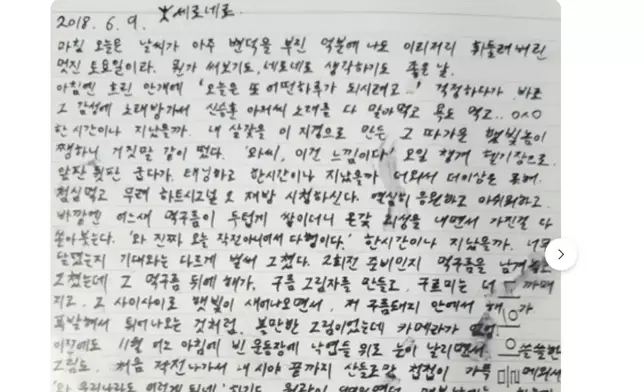 2018. 6. 9. 세로네로.
마침 오늘은 날씨가 아주 변덕을 부린 덕분에 나도 이리저리 휘둘려버린
멋진 토요일이라. 뭔가 써보기도, 세로네로 생각하기도 좋은 날.
아침엔 흐린 안개에 '오늘은 또 어떤하루가 되시려고...' 걱정하다가 바로
그 감성에 노래방가서 신승훈 아저씨 노래를 다 말아먹고 욕도 먹고.. 0^0
한시간이나 지났을까. 내 살갗을 이 지경으로 만든 그 따가운 햇빛놈이
쨍하니 거짓말 같이 떴다. '와씨, 이건 느낌이다' 오일 챙겨 헬기장으로.
앞판 뒷판 굽다가. 태닝하고 한시간이나 지났을까 더워서 더이상은 못해.
점심먹고 무려 하트시그널 2 재방 시청하신다. 열심히 응원하고 아쉬워하고.
바깥엔 어느새 먹구름이 두텁게 쌓이더니 온갖 괴성을 내면서 가진걸 다
쏟아붓는다. '와 진짜 오늘 작전아니어서 다행이다.' 한시간이나 지났을까. 너무
달렸는지 기대와는 다르게 벌써 그쳤다. 2회전 준비인지 먹구름을 남겨
그쳤는데 그 먹구름 뒤에 해가. 구름 그림자를 만들고, 구르미는 더 까매
지고. 그 사이사이로 햇빛이 새어나오면서, 저 구름돼지 안에서 해가
폭발해서 튀어나오는 것처럼. 볼만한 그림이었는데 카메라가
이전에도 11월 어느 아침에 빈 운동장에 낙엽들 위로 눈이 날리면서 쓸쓸한
그림도. 처음 작전나가서 내 시야 끝까지 산들로만 첩첩이 에워서
'와 우리나라도 이렇게 되네'